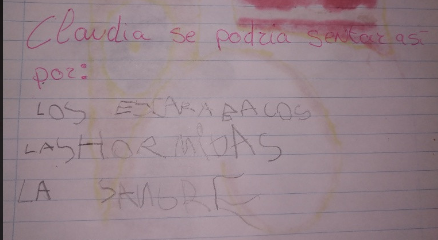 Claudia se podria sentar asi
por:
LOS ESCARABAGOS
LAS HORMIGAS
LA SANGRE